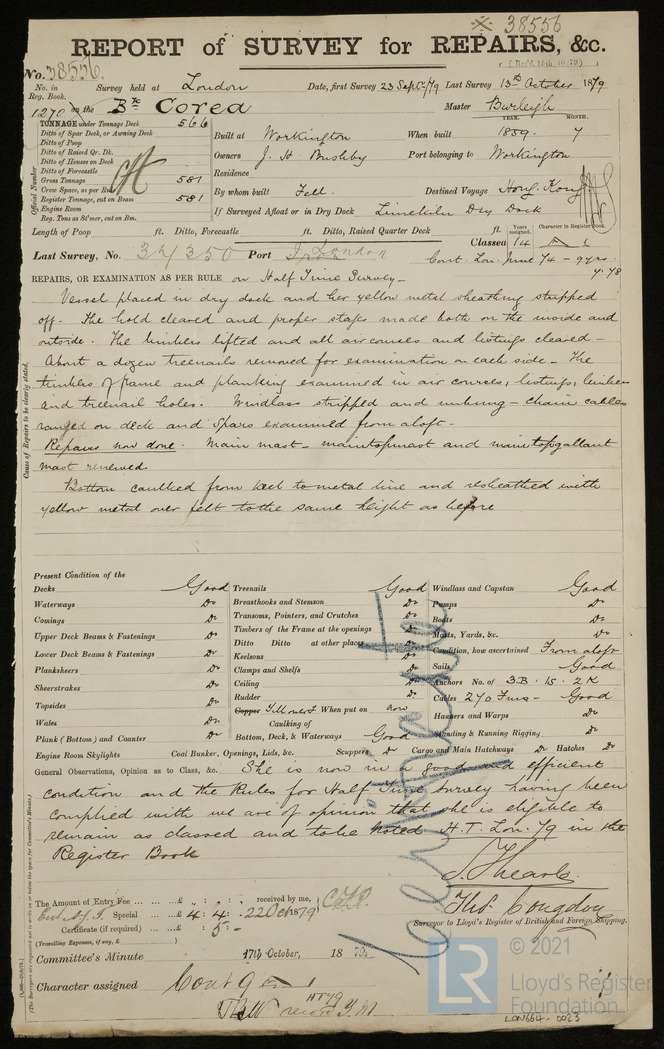 38556
REPORT of SURVEY for REPAIRS, &c.
No. 38556.
No. in Reg. Book. Survey held at London Date, first Survey 23 Sept/79 Last Survey 13th October 1879
1270 on the Bk Corea Master Burleigh
TONNAGE under Tonnage Deck 566
Ditto of Spar Deck, or Awning Deck
Ditto of Poop
Ditto of Raised Qr. Dk.
Ditto of Houses on Deck
Ditto of Forecastle
Gross Tonnage 581
Crew Space, as per Rule
Register Tonnage, cut on Beam 581
Engine Room
Reg. Tons as St'mer, cut on Bm.
Official Number
YEAR. MONTH.
Built at Workington When built 1859. 7
Owners J. H. Bushby Port belonging to Workington
Residence
By whom built Fell. Destined Voyage Hong Kong
If Surveyed Afloat or in Dry Dock Limekiln Dry Dock
Length of Poop ft. Ditto, Forecastle ft. Ditto, Raised Quarter Deck ft.
Years assigned. Character in Register Book.
Classed 14 A 1
Last Survey, No. 34350 Port London
Cont. Lon. June 74 - 9 yrs
4.78
REPAIRS, OR EXAMINATION AS PER RULE on Half Time Survey -
Vessel placed in dry dock and her yellow metal sheathing stripped
off - The hold cleared and proper stages made both on the inside and
outside. The limbers lifted and all air courses and listings cleared -
About a dozen treenails removed for examination on each side - The
timbers of frame and planking examined in air courses, listings, limbers
and treenail holes. Windlass stripped and unhung - chain cables
ranged on deck and spars examined from aloft -
Repairs now done. Main mast - maintopmast and maintopgallant
mast renewed
Bottom caulked from keel to metal line and resheathed with
yellow metal over felt to the same height as before
Cause of Repairs to be clearly stated.
Present Condition of the
Decks Good Treenails Good Windlass and Capstan Good
Waterways Do Breasthooks and Stemson Do Pumps Do
Comings Do Transoms, Pointers, and Crutches Do Boats Do
Upper Deck Beams & Fastenings Do Timbers of the Frame at the openings Do Masts, Yards, &c. Do
Lower Deck Beams & Fastenings Do Ditto Ditto at other places Do Condition, how ascertained From aloft
Planksheers Do Keelsons Do Sails Good
Sheerstrakes Do Clamps and Shelfs Do Anchors No. of 3B. 1S. 2K
Topsides Do Ceiling Do Cables 270 Fms - Good
Wales Do Rudder Do Hawsers and Warps Do
Plank (Bottom) and Counter Do Copper When put on now Standing & Running Rigging Do
Caulking of Bottom, Deck, & Waterways Good
Engine Room Skylights Coal Bunker, Openings, Lids, &c. Scuppers Do Cargo and Main Hatchways Do Hatches Do
General Observations, Opinion as to Class, &c. She is now in a good and efficient
condition and the Rules for Half Time Survey having been
complied with we are of opinion that she is eligible to
remain as classed and to be noted H.T. Lon. 79 in the
Register Book
The Amount of Entry Fee £ : : received by me,
Special £ 4 : 4 : 22 Oct 1879
Certificate (if required) : 5 : -
(Travelling Expenses, if any, £ )
Tho. Congdon
Surveyor to Lloyd's Register of British and Foreign Shipping.
Committee's Minute 17th October, 1879
Character assigned Cont 9
HT 79
© 2021
LR
Lloyd's Register
Foundation
LON664-0023